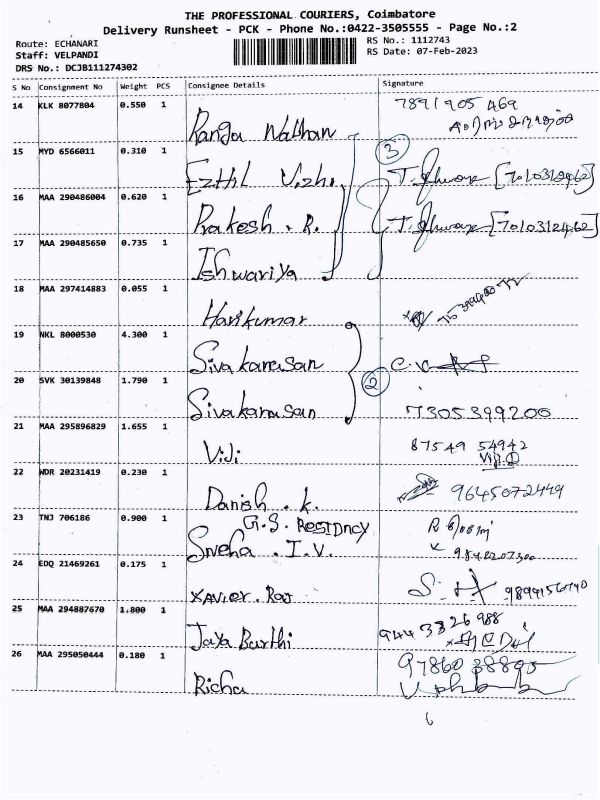 THE PROFESSIONAL COURIERS, Coimbatore
Delivery Runsheet - PCK - Phone No.:0422-3505555 - Page No.:2
Route: ECHANARI
RS No.: 1112743
Staff: VELPANDI
RS Date: 07-Feb-2023
DRS No.: DCJB111274302
S No Consignment No Weight PCS Consignee Details Signature
14 KLK 8077804 0.550 1 Ranga Nathan 7891905469
15 MYD 6566011 0.310 1 Ezthil Vizhi
3
16 MAA 290486004 0.620 1 Prakesh . R.
17 MAA 290485650 0.735 1 Ishwariya
18 MAA 297414883 0.055 1 Harikumar
19 NKL 8000530 4.300 1 Sivakarasan
2
20 SVK 30139848 1.790 1 Sivakarasan 7305399200
21 MAA 295896829 1.655 1 Viji 87549 54942
Viji.D
22 NDR 20231419 0.230 1 Danish . K. 9645072449
G.S. RESIDNCY
23 TNJ 706186 0.900 1 Sneha . I.V. 9842207300
24 EDQ 21469261 0.175 1 XAVIER. Raj 9894156740
25 MAA 294887670 1.800 1 Jaya Barthi 944 3326 988
26 MAA 295050444 0.180 1 Richa 97860 38895